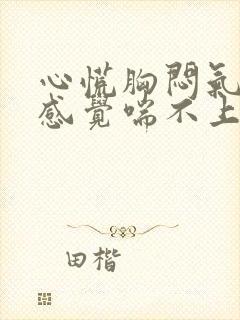 心慌胸悶氣
感覺喘不上
田楷